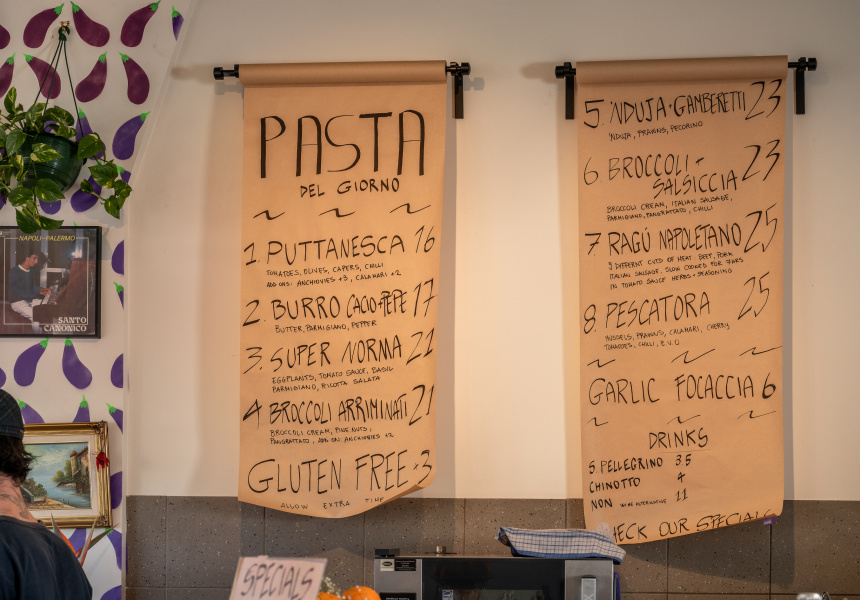 NAPOLI-PALERMO
SANTO
CANONICO
PASTA
DEL GIORNO
1. PUTTANESCA 16
TOMATOES, OLIVES, CAPERS, CHILLI
ADD ONS: ANCHIOVIES +3, CALAMARI +2
2. BURRO CACIO+PEPE 17
BUTTER, PARMIGIANO, PEPPER
3. SUPER NORMA 21
EGGPLANTS, TOMATO SAUCE, BASIL
PARMIGIANO, RICOTTA SALATA
4 BROCCOLI ARRIMINATI 21
BROCCOLI CREAM, PINE NUTS,
PANGRATTATO, ADD ON: ANCHIOVIES +2
GLUTEN FREE +3
ALLOW EXTRA TIME
5 'NDUJA+GAMBERETTI 23
'NDUJA, PRAWNS, PECORINO
6. BROCCOLI-
SALSICCIA 23
BROCCOLI CREAM, ITALIAN SAUSAGE,
PARMIGIANO, PANGRATTATO, CHILLI
7 RAGÚ NAPOLETANO 25
3 DIFFERENT CUTS OF MEAT: BEEF, PORK
ITALIAN SAUSAGE. SLOW COOKED FOR 7HRS
IN TOMATO SAUCE HERBS+SEASONING
8. PESCATORA 25
MUSSELS, PRAWNS, CALAMARI, CHERRY
TOMATOES, CHILLI, E.V.O
GARLIC FOCACCIA 6
DRINKS
S. PELLEGRINO 3.5
CHINOTTO 4
NON WINE ALTERNATIVE 11
HECK OUR SPECIALS
SPECIALS